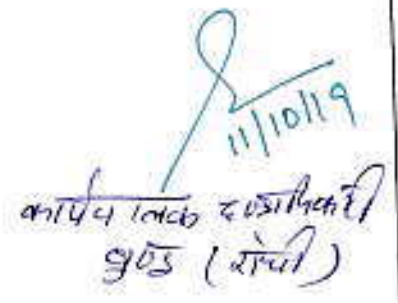 11/10/19
कार्यपालक दण्डाधिकारी
बुण्डू (राँची)